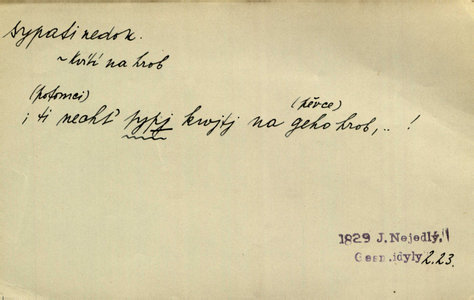 sypati nedok.
~ kvítí na hrob
(potomci) (pěvce)
; ti nechť sypj kwjtj na geho hrob, .. !
1829 J. Nejedlý,
Gesn. idyly 2.23.